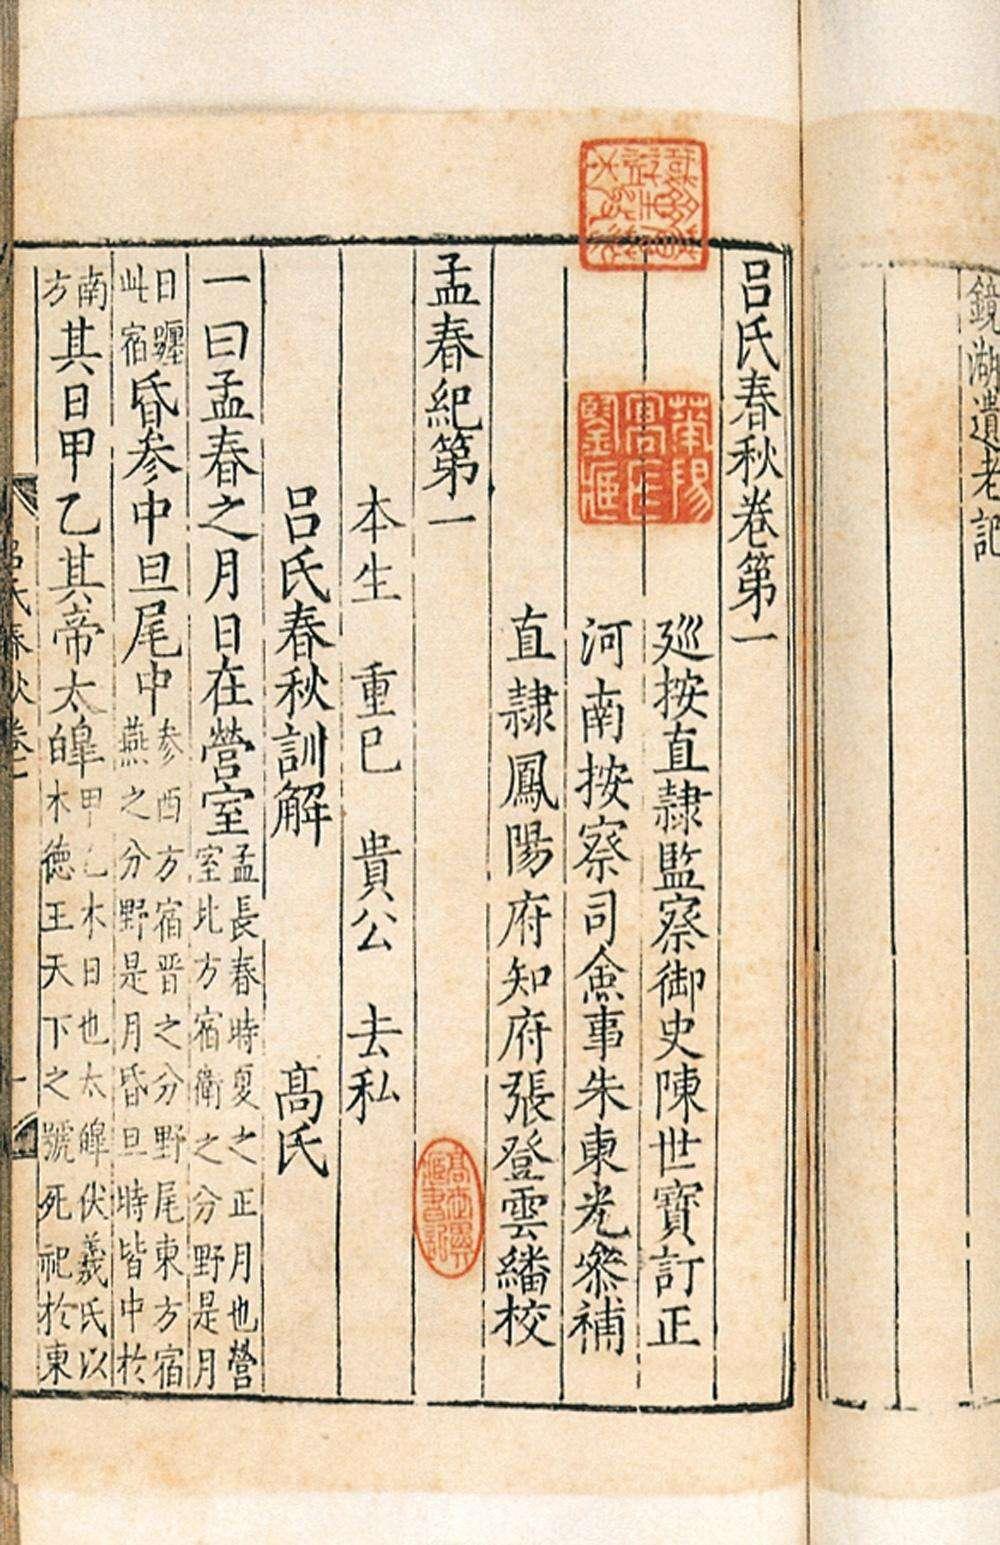 鏡湖遺老記
呂氏春秋卷第一
廵按直隸監察御史陳世寶訂正
河南按察司僉事朱東光叅補
直隸鳳陽府知府張登雲繙校
孟春紀第一
本生 重巳 貴公 去私
呂氏春秋訓解 高氏
一曰孟春之月日在營室孟長春時夏之正月也營
室北方宿衛之分野是月
日躔
此宿昏参中旦尾中参西方宿晋之分野尾東方宿
燕之分野是月昏旦時皆中於
南
方其日甲乙其帝太皥甲乙木日也太皥伏羲氏以
木德王天下之號死祀於東
呂氏春秋卷一